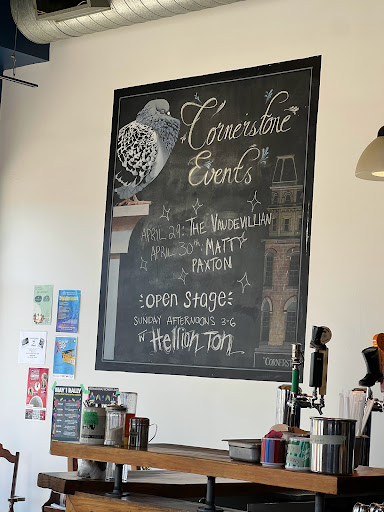 Cornerstone
Events
APRIL 29: THE VAUDEVILLIAN
APRIL 30th: MATTY
PAXTON
OPEN STAGE
SUNDAY AFTERNOONS 3-6
W/ Hellion Tom
MAY 1 RALLY